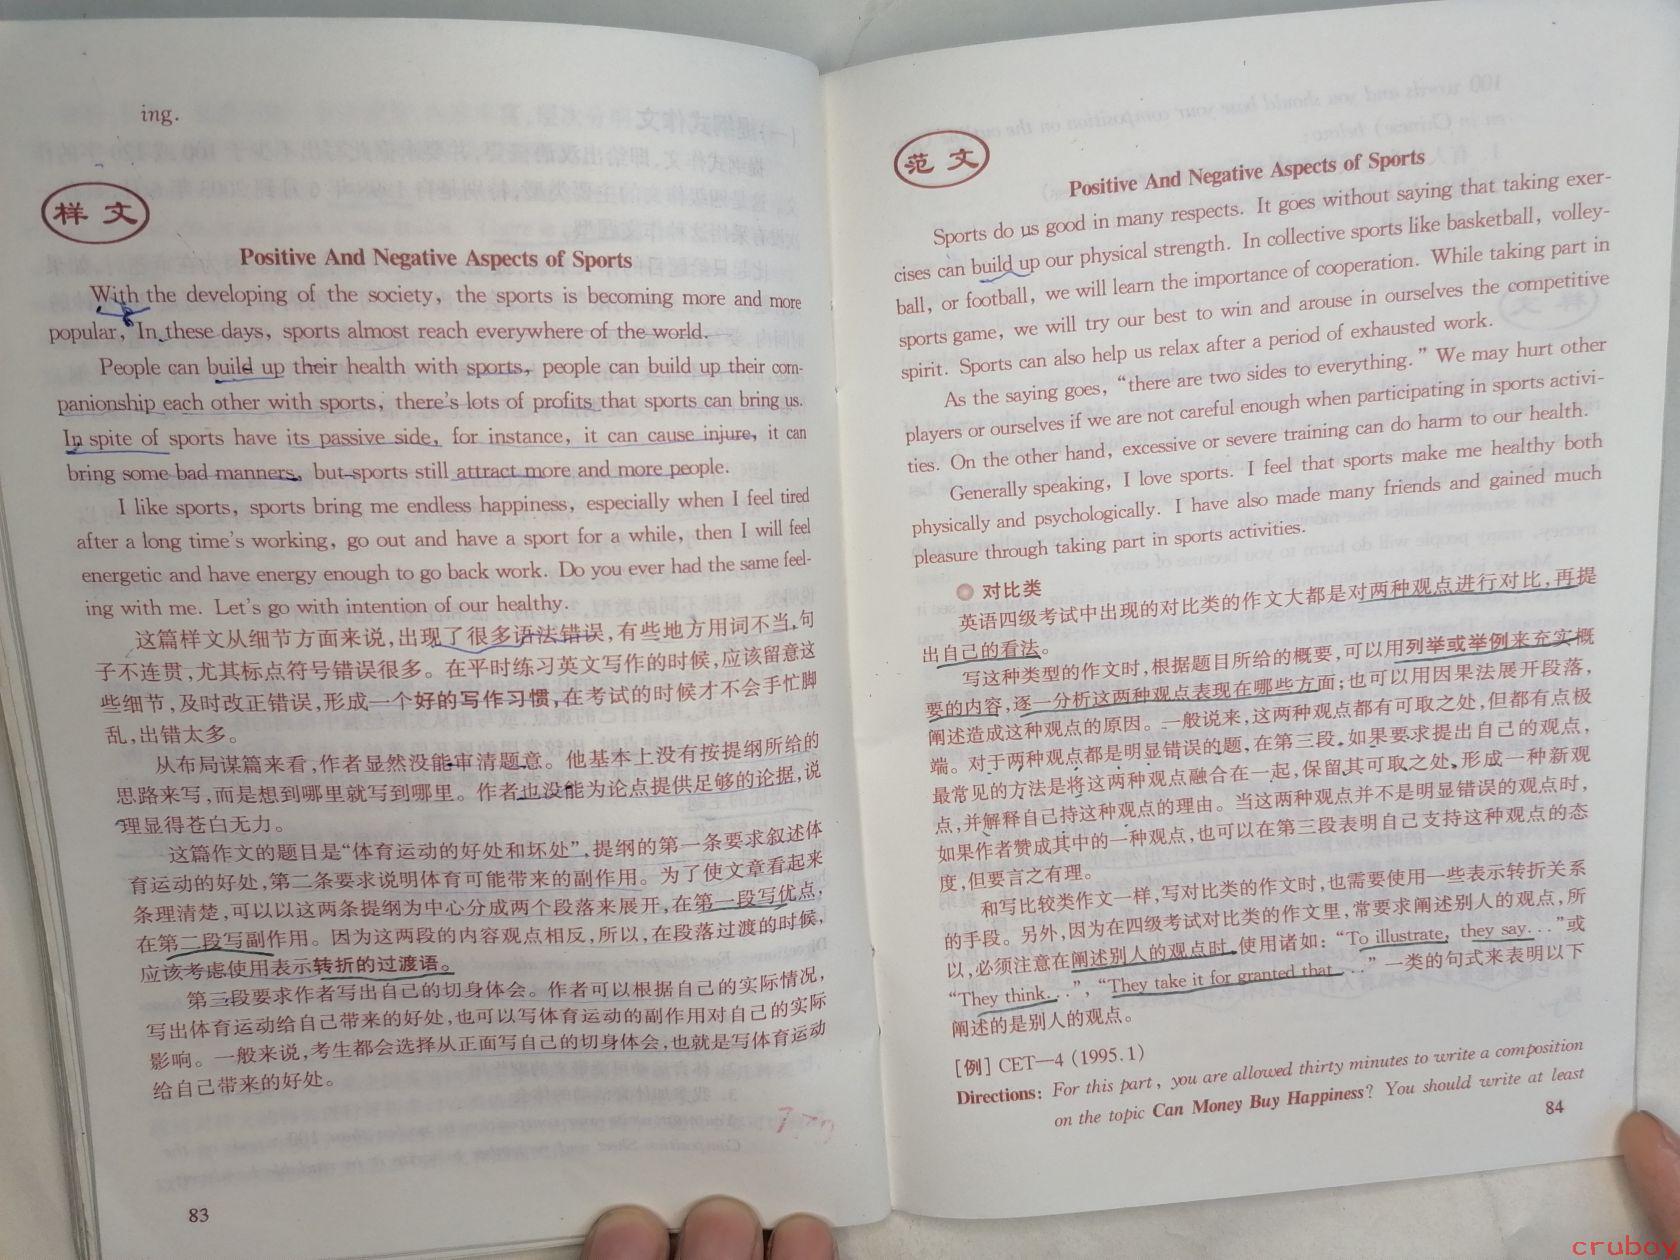 ing.
样文
Positive And Negative Aspects of Sports
With the developing of the society, the sports is becoming more and more
popular, In these days, sports almost reach everywhere of the world.
People can build up their health with sports, people can build up their com-
panionship each other with sports, there's lots of profits that sports can bring us.
In spite of sports have its passive side, for instance, it can cause injure, it can
bring some bad manners, but sports still attract more and more people.
I like sports, sports bring me endless happiness, especially when I feel tired
after a long time's working, go out and have a sport for a while, then I will feel
energetic and have energy enough to go back work. Do you ever had the same feel-
ing with me. Let's go with intention of our healthy.
这篇样文从细节方面来说,出现了很多语法错误,有些地方用词不当,句
子不连贯,尤其标点符号错误很多。在平时练习英文写作的时候,应该留意这
些细节,及时改正错误,形成一个好的写作习惯,在考试的时候才不会手忙脚
乱,出错太多。
从布局谋篇来看,作者显然没能审清题意。他基本上没有按提纲所给的
思路来写,而是想到哪里就写到哪里。作者也没能为论点提供足够的论据,说
理显得苍白无力。
这篇作文的题目是“体育运动的好处和坏处”,提纲的第一条要求叙述体
育运动的好处,第二条要求说明体育可能带来的副作用。为了使文章看起来
条理清楚,可以以这两条提纲为中心分成两个段落来展开,在第一段写优点,
在第二段写副作用。因为这两段的内容观点相反,所以,在段落过渡的时候,
应该考虑使用表示转折的过渡语。
第三段要求作者写出自己的切身体会。作者可以根据自己的实际情况,
写出体育运动给自己带来的好处,也可以写体育运动的副作用对自己的实际
影响。一般来说,考生都会选择从正面写自己的切身体会,也就是写体育运动
给自己带来的好处。
83
范文
Positive And Negative Aspects of Sports
Sports do us good in many respects. It goes without saying that taking exer-
cises can build up our physical strength. In collective sports like basketball, volley-
ball, or football, we will learn the importance of cooperation. While taking part in
sports game, we will try our best to win and arouse in ourselves the competitive
spirit. Sports can also help us relax after a period of exhausted work.
As the saying goes, “there are two sides to everything.” We may hurt other
players or ourselves if we are not careful enough when participating in sports activi-
ties. On the other hand, excessive or severe training can do harm to our health.
Generally speaking, I love sports. I feel that sports make me healthy both
physically and psychologically. I have also made many friends and gained much
pleasure through taking part in sports activities.
对比类
英语四级考试中出现的对比类的作文大都是对两种观点进行对比,再提
出自己的看法。
写这种类型的作文时,根据题目所给的概要,可以用列举或举例来充实概
要的内容,逐一分析这两种观点表现在哪些方面;也可以用因果法展开段落,
阐述造成这种观点的原因。一般说来,这两种观点都有可取之处,但都有点极
端。对于两种观点都是明显错误的题,在第三段,如果要求提出自己的观点,
最常见的方法是将这两种观点融合在一起,保留其可取之处,形成一种新观
点,并解释自己持这种观点的理由。当这两种观点并不是明显错误的观点时,
如果作者赞成其中的一种观点,也可以在第三段表明自己支持这种观点的态
度,但要言之有理。
和写比较类作文一样,写对比类的作文时,也需要使用一些表示转折关系
的手段。另外,因为在四级考试对比类的作文里,常要求阐述别人的观点,所
以,必须注意在阐述别人的观点时,使用诸如:“To illustrate, they say...”或
“They think...”, “They take it for granted that...” 一类的句式来表明以下
阐述的是别人的观点。
[例] CET—4 (1995.1)
Directions: For this part, you are allowed thirty minutes to write a composition
on the topic Can Money Buy Happiness? You should write at least
84
cruboy